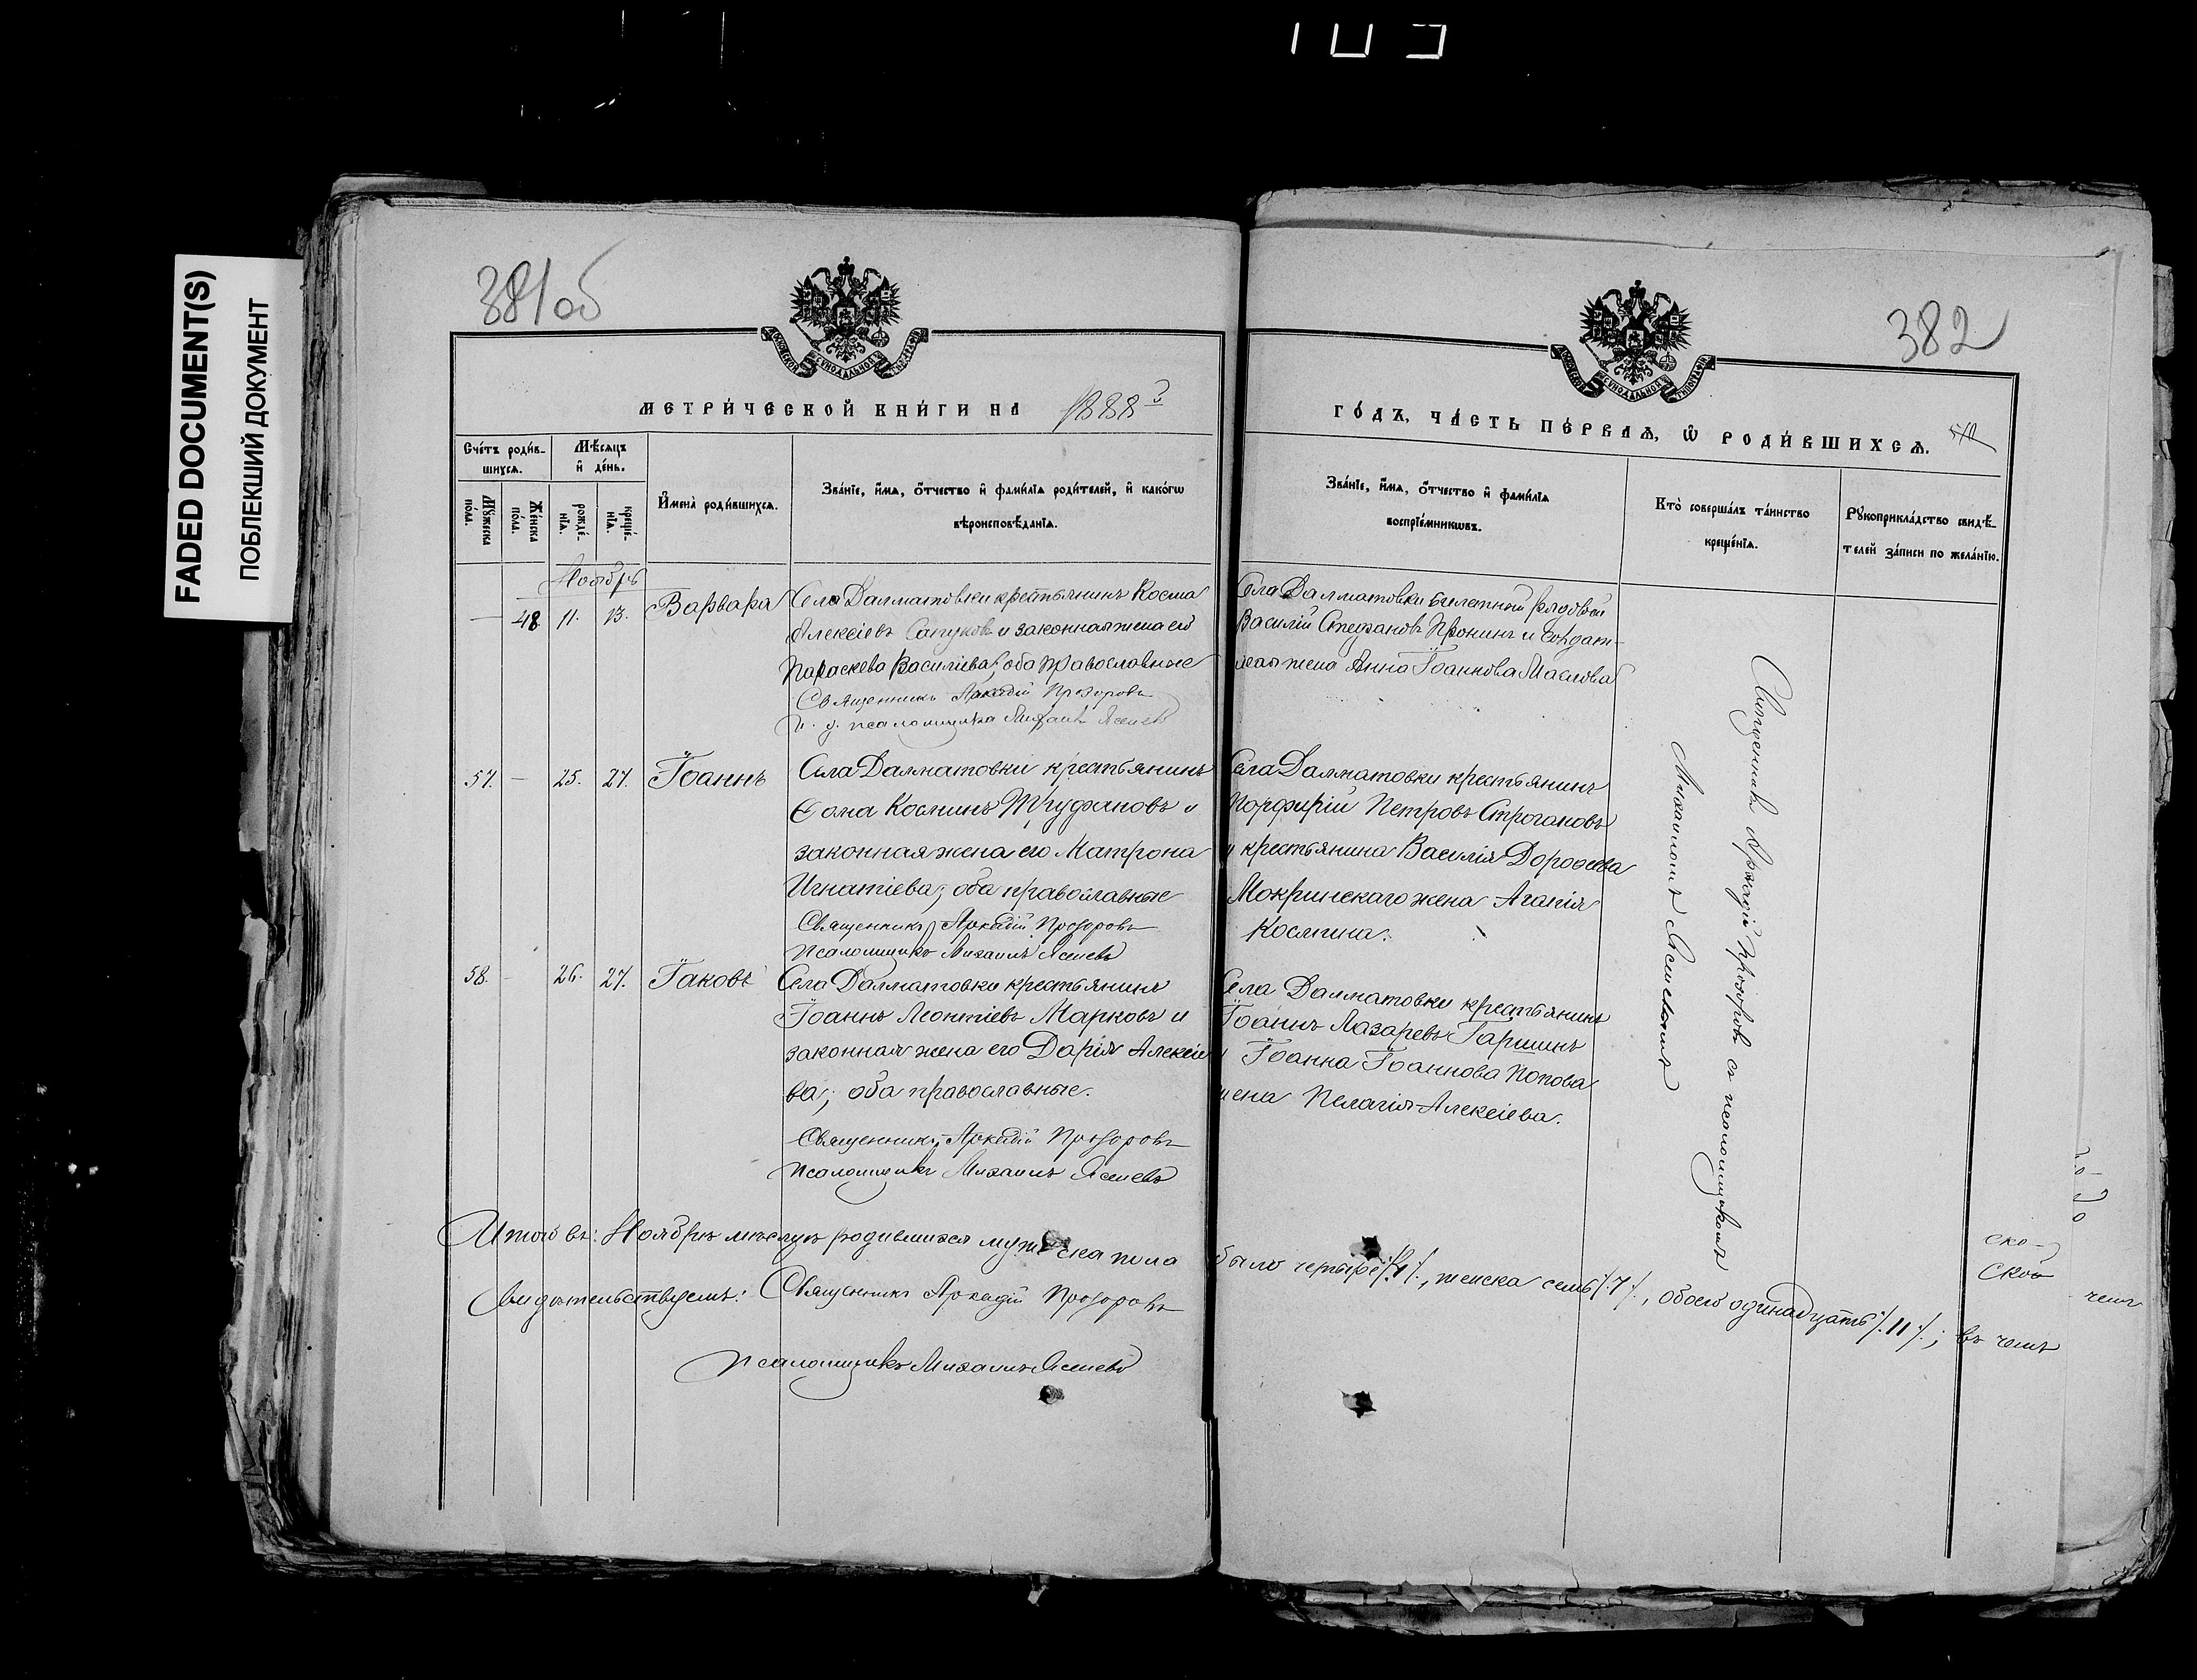 FADED DOCUMENT(S)
ПОБЛЕКШИЙ ДОКУМЕНТ
381об
МЕТРИЧЕСКОЙ КНИГИ НА 1888
Счетъ родив-
шихся.
Мѣсяцъ
и день.
Мужеска
пола.
Женска
пола.
рожде-
нія.
креще-
нія.
Имена родившихся.
Званіе, имя, отчество и фамилія родителей, и какогѡ
вѣроисповѣданія.
Ноябрь
48 11. 13. Варвара
Села Далматовки крестьянинъ Косма
Алексіевъ Сапуновъ и законная жена его
Параскева Василіева; оба православные
Священникъ Аркадій Прозоровъ
и. д. псаломщика Михаилъ Ясеневъ
57. — 25. 27. Іоаннъ
Села Далматовки крестьянинъ
Ѳома Косминъ Труфановъ и
законная жена его Матрона
Игнатіева; оба православные
Священникъ Аркадій Прозоровъ
Псаломщикъ Михаилъ Ясеневъ
58. — 26. 27. Іаковъ
Села Далматовки крестьянинъ
Іоаннъ Леонтіевъ Марковъ и
законная жена его Дарія Алексіе
ва; оба православные.
Священникъ Аркадій Прозоровъ
Псаломщикъ Михаилъ Ясеневъ
Итого въ: Ноябрѣ мѣсяцѣ родившихся мужеска пола
свидѣтельствуемъ: Священникъ Аркадій Прозоровъ
Псаломщикъ Михаилъ Ясеневъ
382
ГОДЪ, ЧАСТЬ ПЕРВАЯ, Ѡ РОДИВШИХСЯ.
Званіе, имя, отчество и фамилія
воспріемникѡвъ.
Кто совершалъ таинство
крещенія.
Рукоприкладство свидѣ-
телей записи по желанію.
Села Далматовки билетный рядовой
Василій Стефановъ Пронинъ и солдат-
ская жена Анна Іоаннова Маслова
Села Далматовки крестьянинъ
Порфирій Петровъ Строгановъ
и крестьянина Василія Дороѳеева
Мокринскаго жена Агапія
Космина.
Села Далматовки крестьянинъ
Іоаннъ Лазаревъ Гаршинъ
и Іоанна Іоаннова Попова
жена Пелагія Алексіева.
Священникъ Аркадій Прозоровъ съ псаломщикомъ
Михаиломъ Ясеневымъ
было четыре /.4./, женска семь /.7./, обоего одинадцать /.11./; въ чемъ
ско-
ской
чемъ